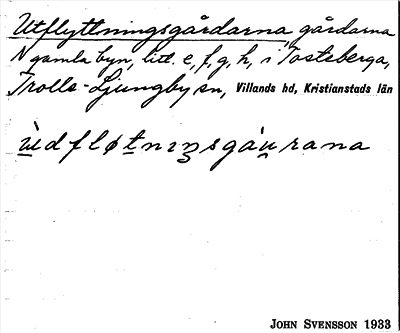 Utflyttningsgårdarna, gårdarna
N gamla byn, litt. e, f, g, h, i Tosteberga,
Trolle-Ljungby sn, Villands hd, Kristianstads län
ùdfløtnıŋsgáurana
JOHN SVENSSON 1933